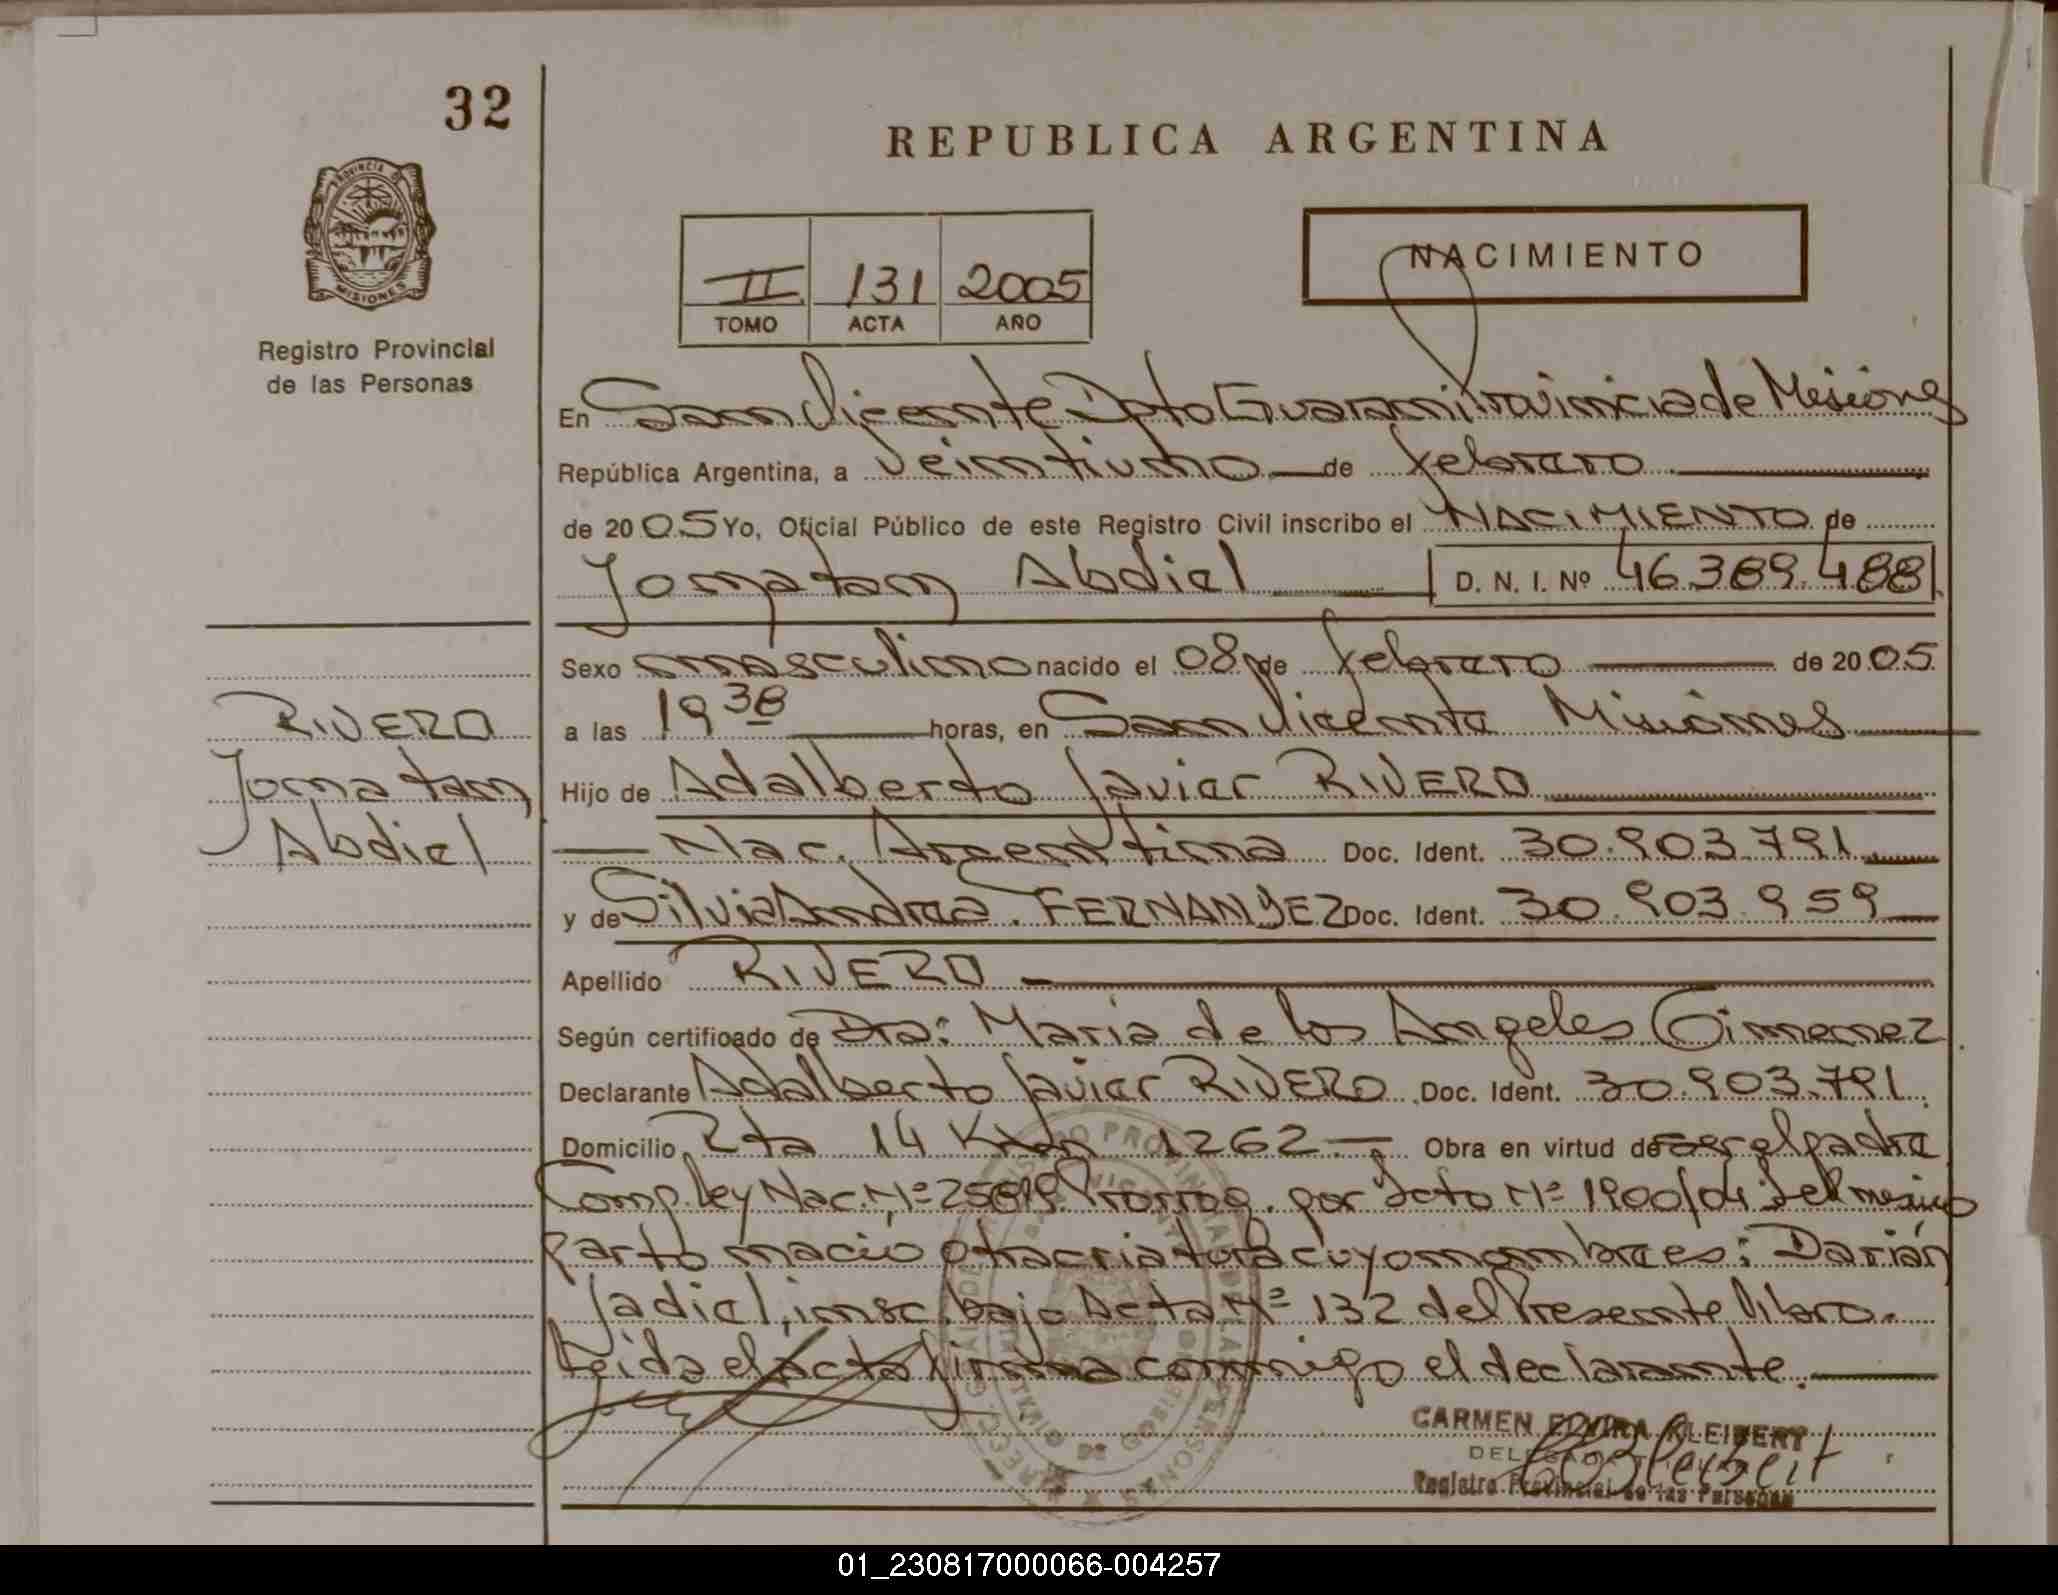 32
REPUBLICA ARGENTINA
PROVINCIA DE
MISIONES
Registro Provincial
de las Personas
II 131 2005
TOMO ACTA AÑO
NACIMIENTO
En San Vicente Dpto Guarani Provincia de Misiones
República Argentina, a Veintiuno de febrero
de 2005 Yo, Oficial Público de este Registro Civil inscribo el NACIMIENTO de
Jonatan Abdiel D. N. I. Nº 46.389.488
Sexo masculino nacido el 08 de febrero de 2005
RIVERO
a las 19 38 horas, en San Vicente Misiones
Jonatan
Hijo de Adalberto Javier RIVERO
Abdiel
Nac. Argentina Doc. Ident. 30.903.791
y de Silvia Andrea FERNANDEZ Doc. Ident. 30.903.959
Apellido RIVERO
Según certificado de Dra: Maria de los Angeles Gimenez
Declarante Adalberto Javier RIVERO Doc. Ident. 30.903.791
Domicilio Rta 14 Km 1262.- Obra en virtud de ser el padre
Comp. Ley Nac. Nº 25819 Prorrog. por Dcto Nº 1900/04 Del mismo
parto nació otra criatura cuyo nombre es: Darián
Jadiel, insc. bajo Acta Nº 132 del Presente libro.
Leida el acta firma conmigo el declarante.
CARMEN ELVIRA KLEIBERT
Registro Provincial de las Personas
01_230817000066-004257